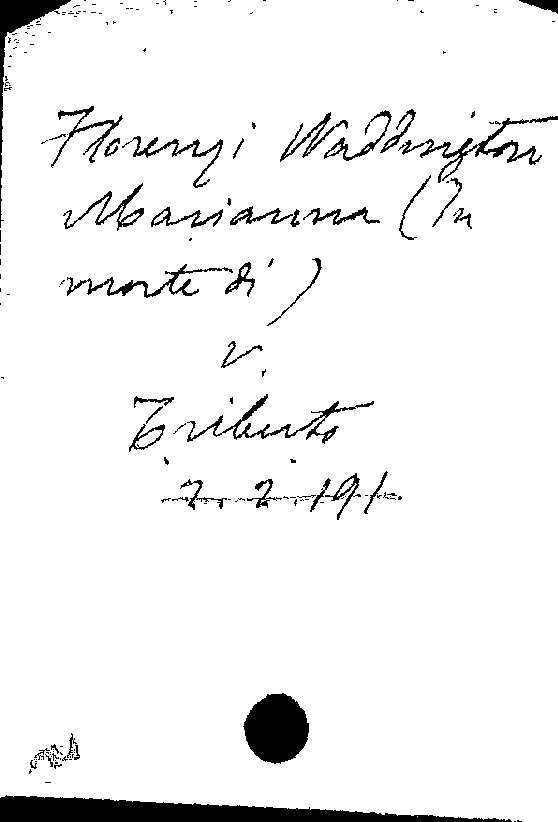 Florenzi Waddington
Marianna (In
morte di)
v.
Tributo
2.2.191.